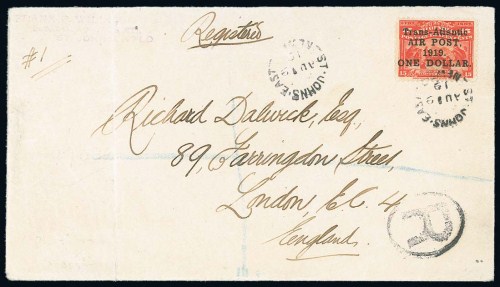 Registered
#1
Trans-Atlantic
AIR POST,
1919.
ONE DOLLAR.
ST. JOHN'S. EAST
AU 9
ST. JOHN'S. EAST
NEW
AU 9
Richard Dalwick, Esq,
89, Farringdon Street,
London, E.C. 4
England.
R